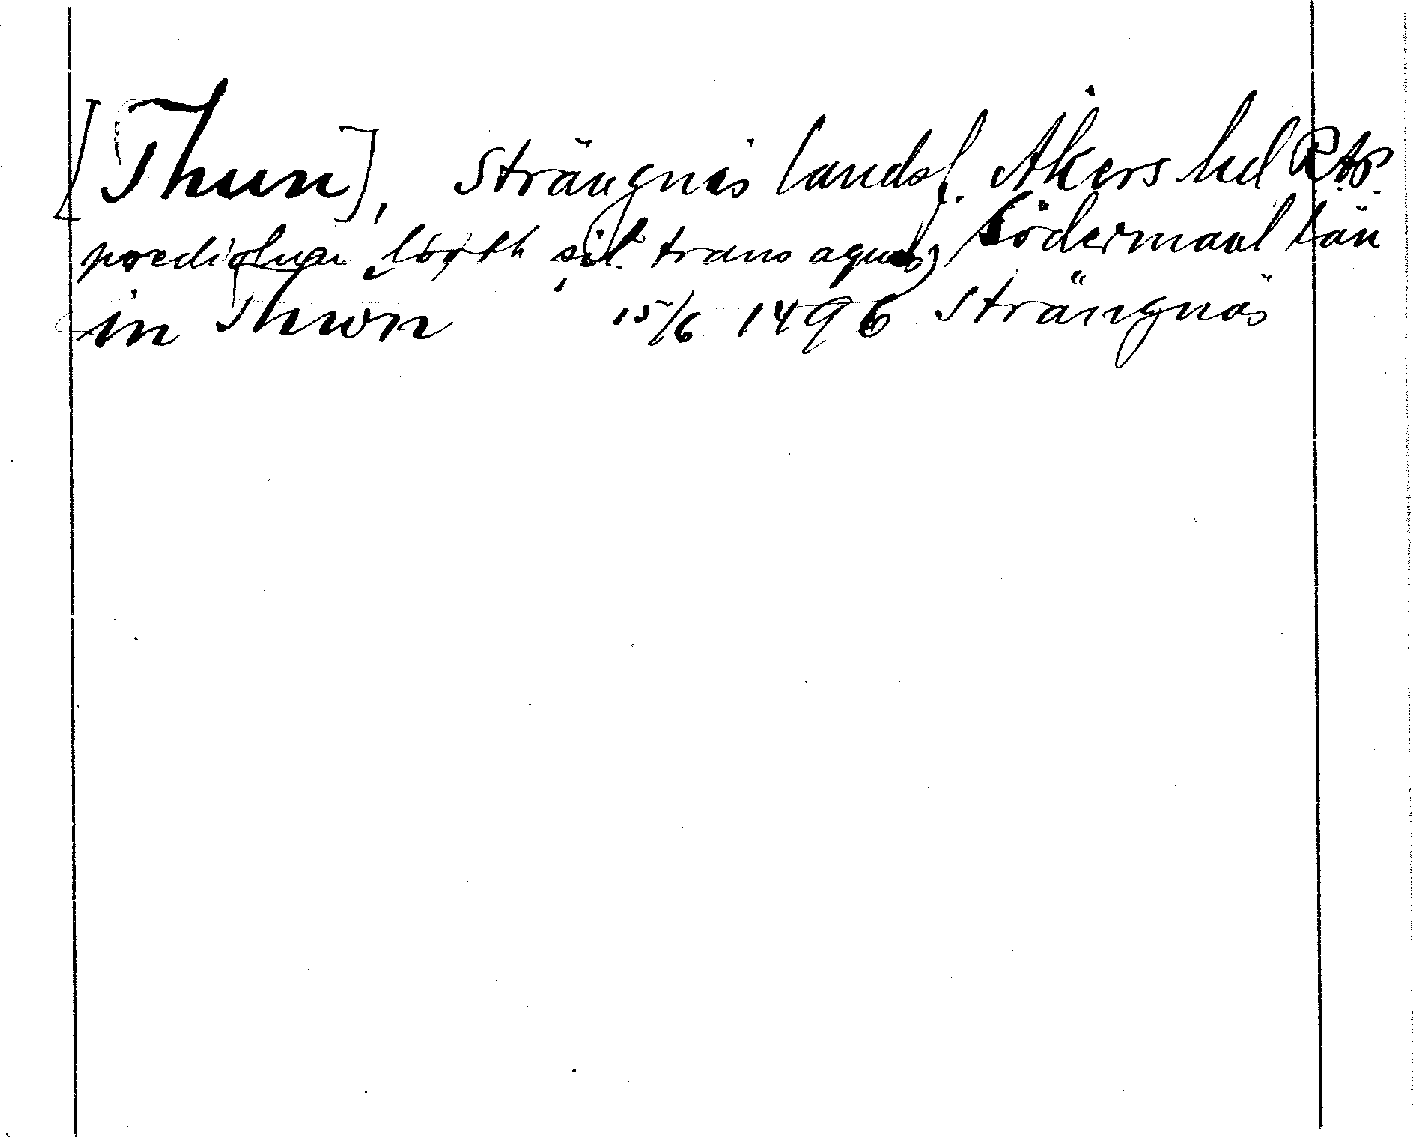 [Thun], Strängnäs landsf. Åkers hd RAp.
predictum torth sit. trans aquas) Södermanl län
in Thwn 15/6 1496 Strängnäs